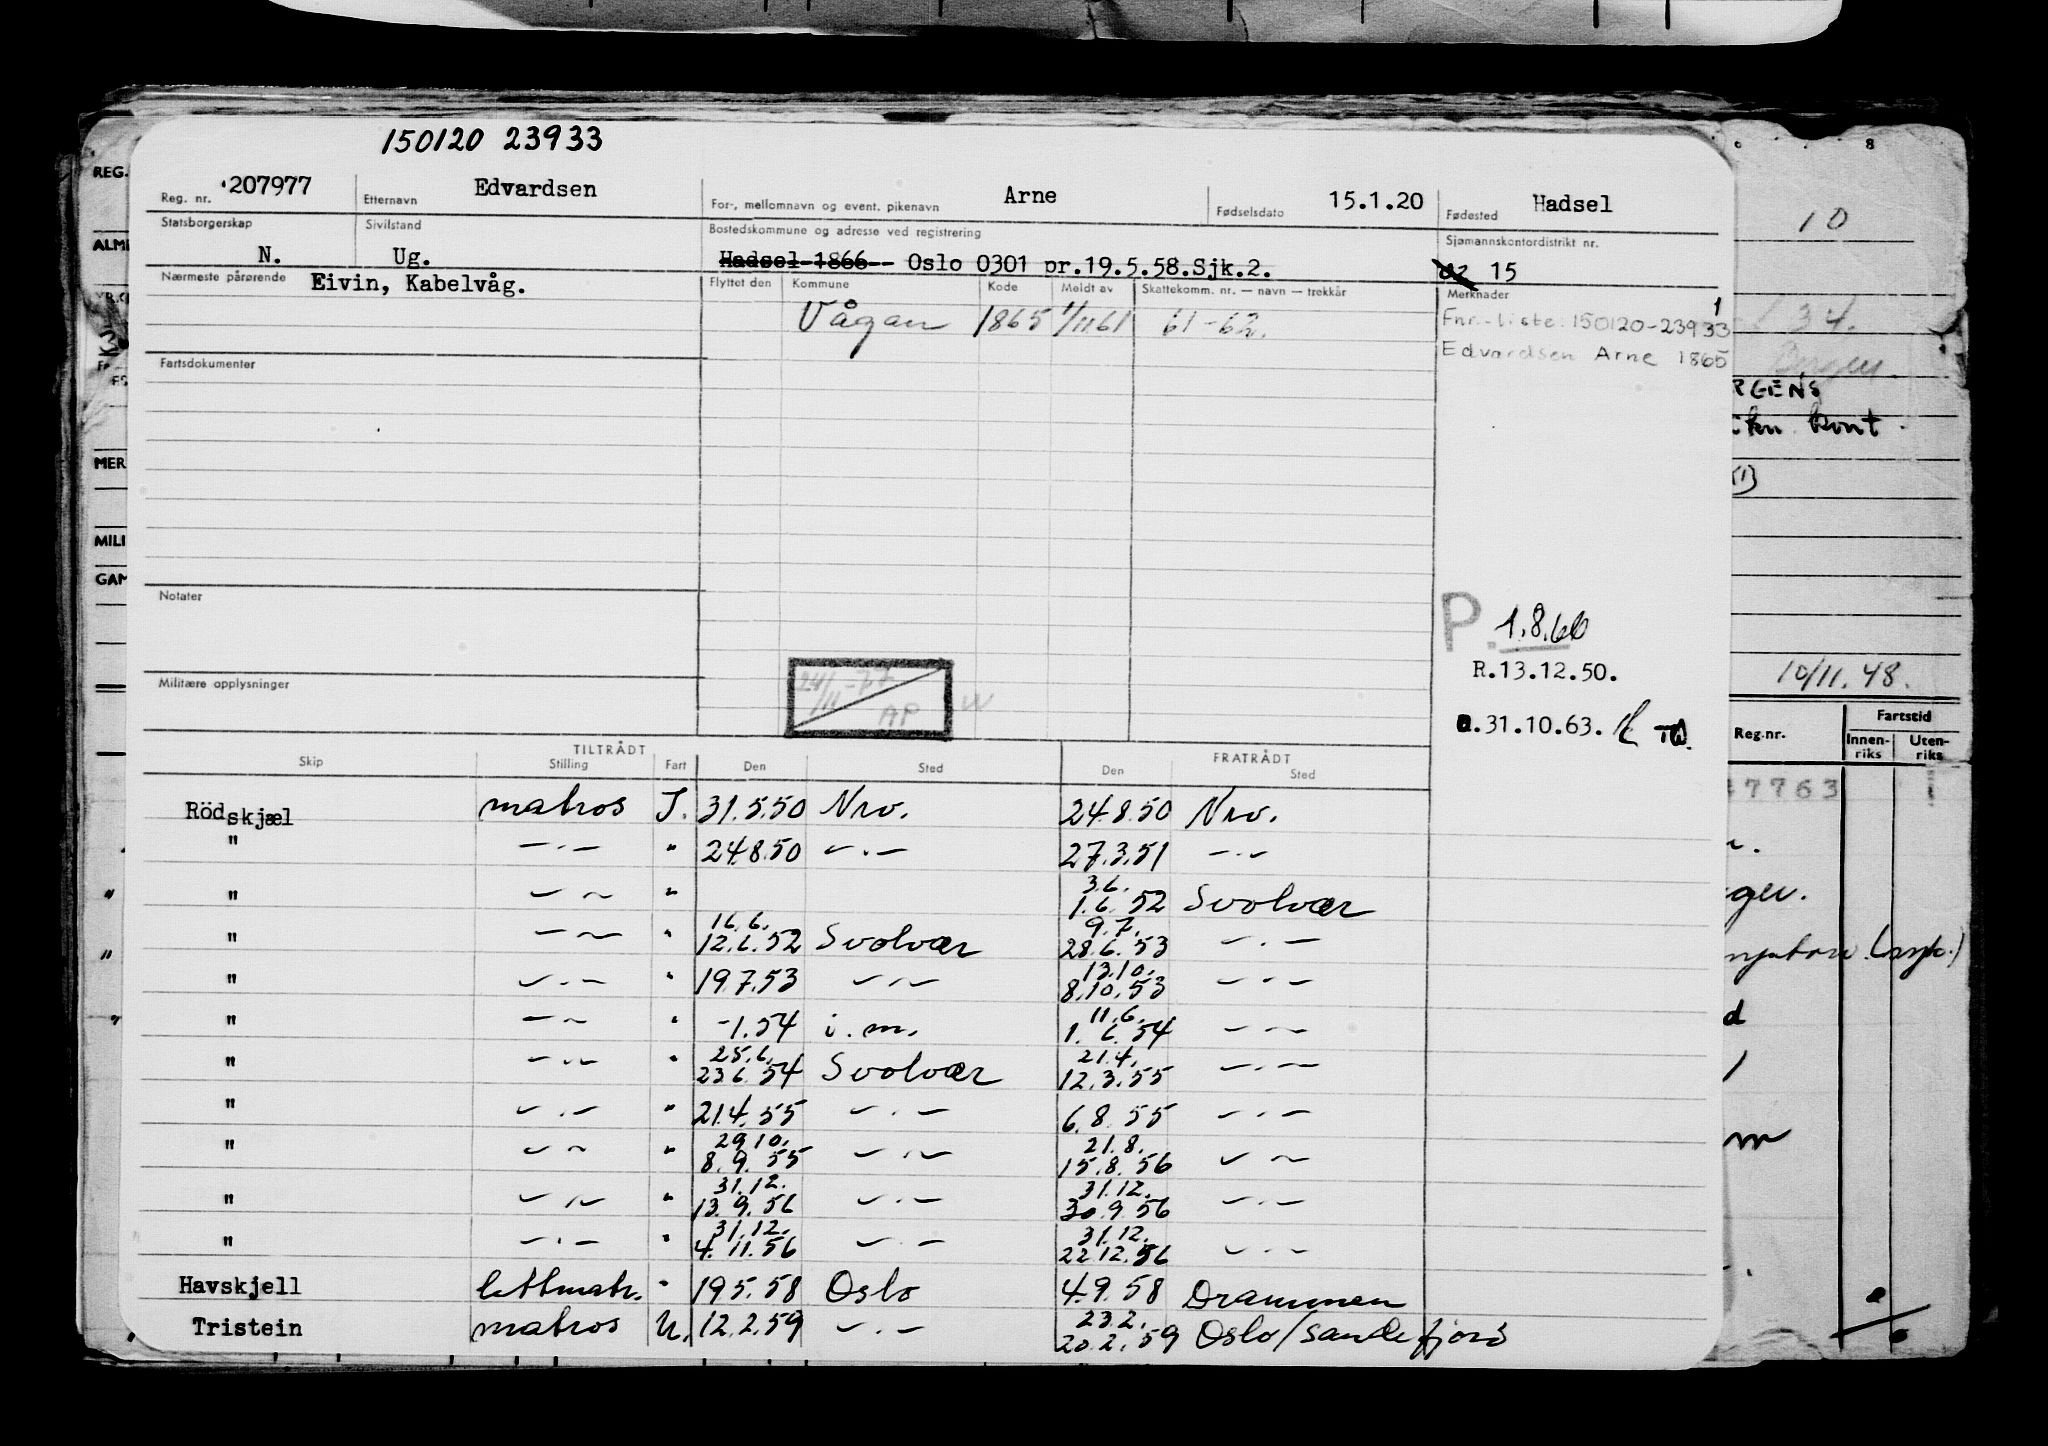 150120 23933
Reg. nr. 207977 Etternavn Edvardsen For-, mellomnavn og event. pikenavn Arne Fødselsdato 15.1.20 Fødested Hadsel
Statsborgerskap N. Sivilstand Ug. Bostedskommune og adresse ved registrering Hadsel 1866 -- Oslo 0301 pr.19.5.58.Sjk.2. Sjømannskontordistrikt nr. 02 15
Nærmeste pårørende Eivin, Kabelvåg. Flyttet den Kommune Kode Meldt av Skattekomm. nr. — navn — trekkår Merknader 1
Vågan 1865 1/11 61 61-62. Fnr-liste: 150120-23933
Edvardsen Arne 1865
Fartsdokumenter
Notater
P. 1.8.66
R.13.12.50.
Militære opplysninger
24/11-77 AP W
.31.10.63.
TILTRÅDT FRATRÅDT
Skip Stilling Fart Den Sted Den Sted
Rödskjæl matros I. 31.5.50 Nrv. 24.8.50 Nrv.
" —.— " 24.8.50 —.— 27.3.51 —.—
" — ~ " 3.6. 1.6.52 Svolvær
" — ~ " 16.6. 12.6.52 Svolvær 9.7. 28.6.53 —.—
" —.— " 19.7.53 —.— 13.10. 8.10.53 —.—
" — ~ " -1.54 i.m. 11.6. 1.6.54 —.—
" —.— " 25.6. 23.6.54 Svolvær 21.4. 12.3.55 —.—
" —.— " 21.4.55 —.— 6.8.55 —.—
" — ~ " 29.10. 8.9.55 —.— 21.8. 15.8.56 — ~
" —.— " 31.12. 13.9.56 —.— 31.12. 30.9.56 —.—
" —.— " 31.12. 4.11.56 —.— 31.12. 22.12.56 —.—
Havskjell lettmatr. " 19.5.58 Oslo 4.9.58 Drammen
Tristein matros U. 12.2.59 —.— 23.2. 20.2.59 Oslo/Sandefjord
REG.
ALM
MER
MILI
GAM
8
10
34.
Bergen
RGENS
kont.
10/11.48.
Reg.nr.
Fartstid
Innen-riks
Uten-riks
7763